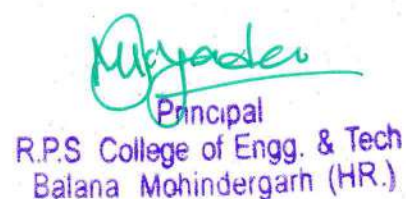 Principal
R.P.S College of Engg. & Tech
Balana Mohindergarh (HR.)